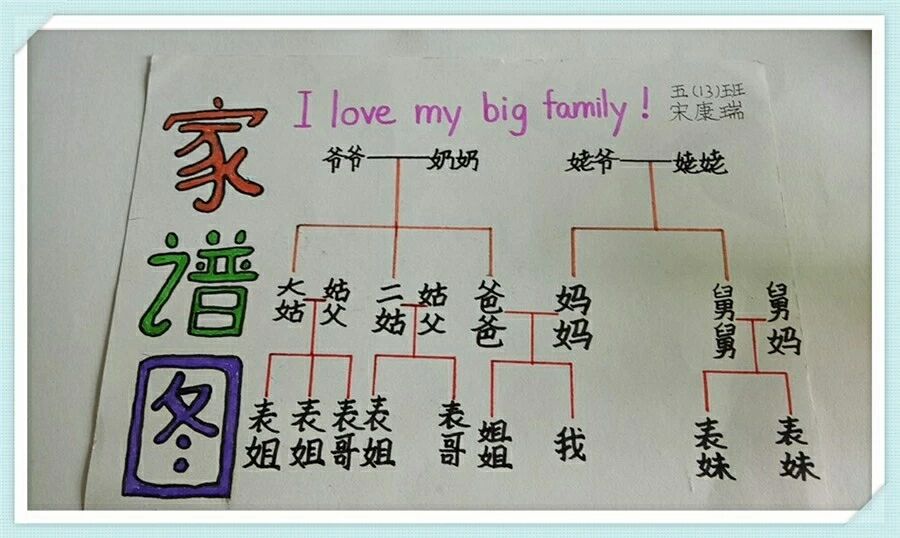 家谱图
I love my big family!
五(13)班
宋康瑞
爷爷 奶奶 姥爷 姥姥
大姑 姑父 二姑 姑父 爸爸 妈妈 舅舅 舅妈
表姐 表姐 表哥 表姐 表哥 姐姐 我 表妹 表妹